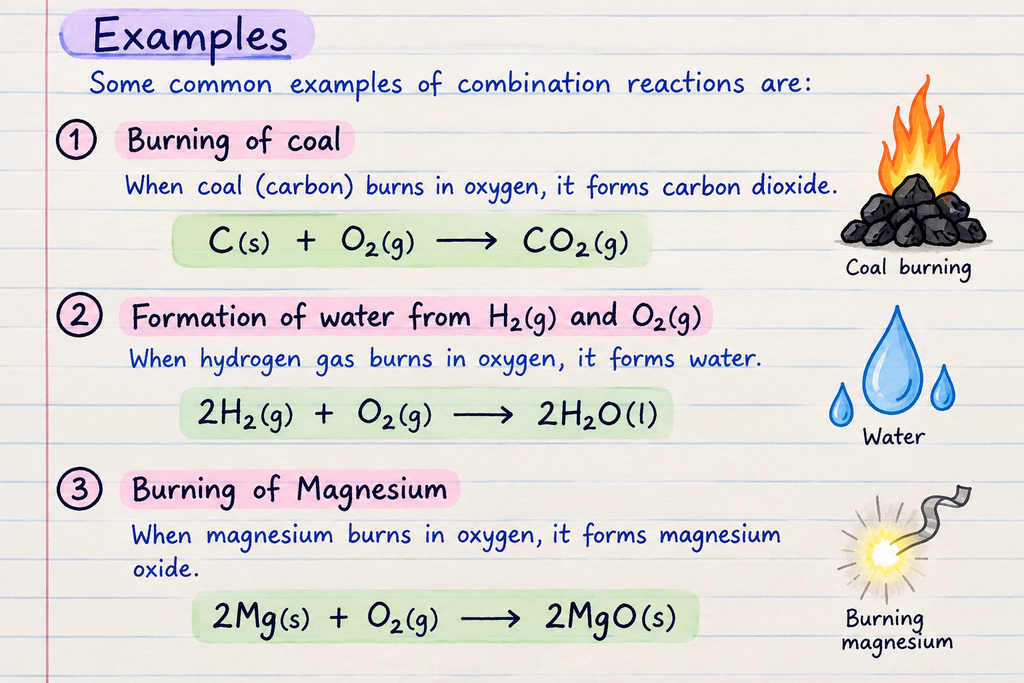 Examples
Some common examples of combination reactions are:
1 Burning of coal
When coal (carbon) burns in oxygen, it forms carbon dioxide.
C(s) + O₂(g) ⟶ CO₂(g)
Coal burning
2 Formation of water from H₂(g) and O₂(g)
When hydrogen gas burns in oxygen, it forms water.
2H₂(g) + O₂(g) ⟶ 2H₂O(l)
Water
3 Burning of Magnesium
When magnesium burns in oxygen, it forms magnesium
oxide.
2Mg(s) + O₂(g) ⟶ 2MgO(s)
Burning
magnesium